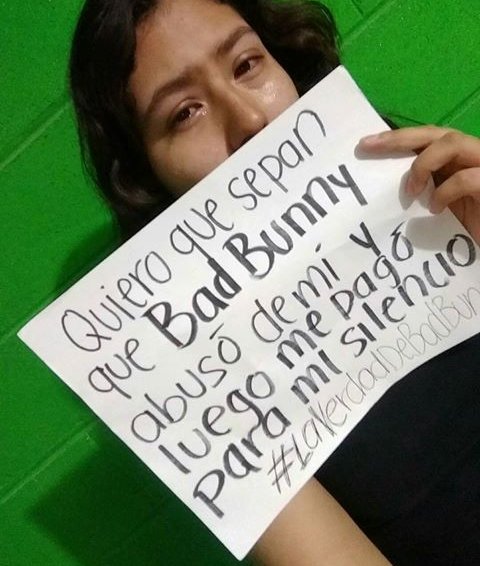 Quiero que sepan
que Bad Bunny
abusó de mí y
luego me pagó
para mi silencio
#LaVerdadDeBadBun